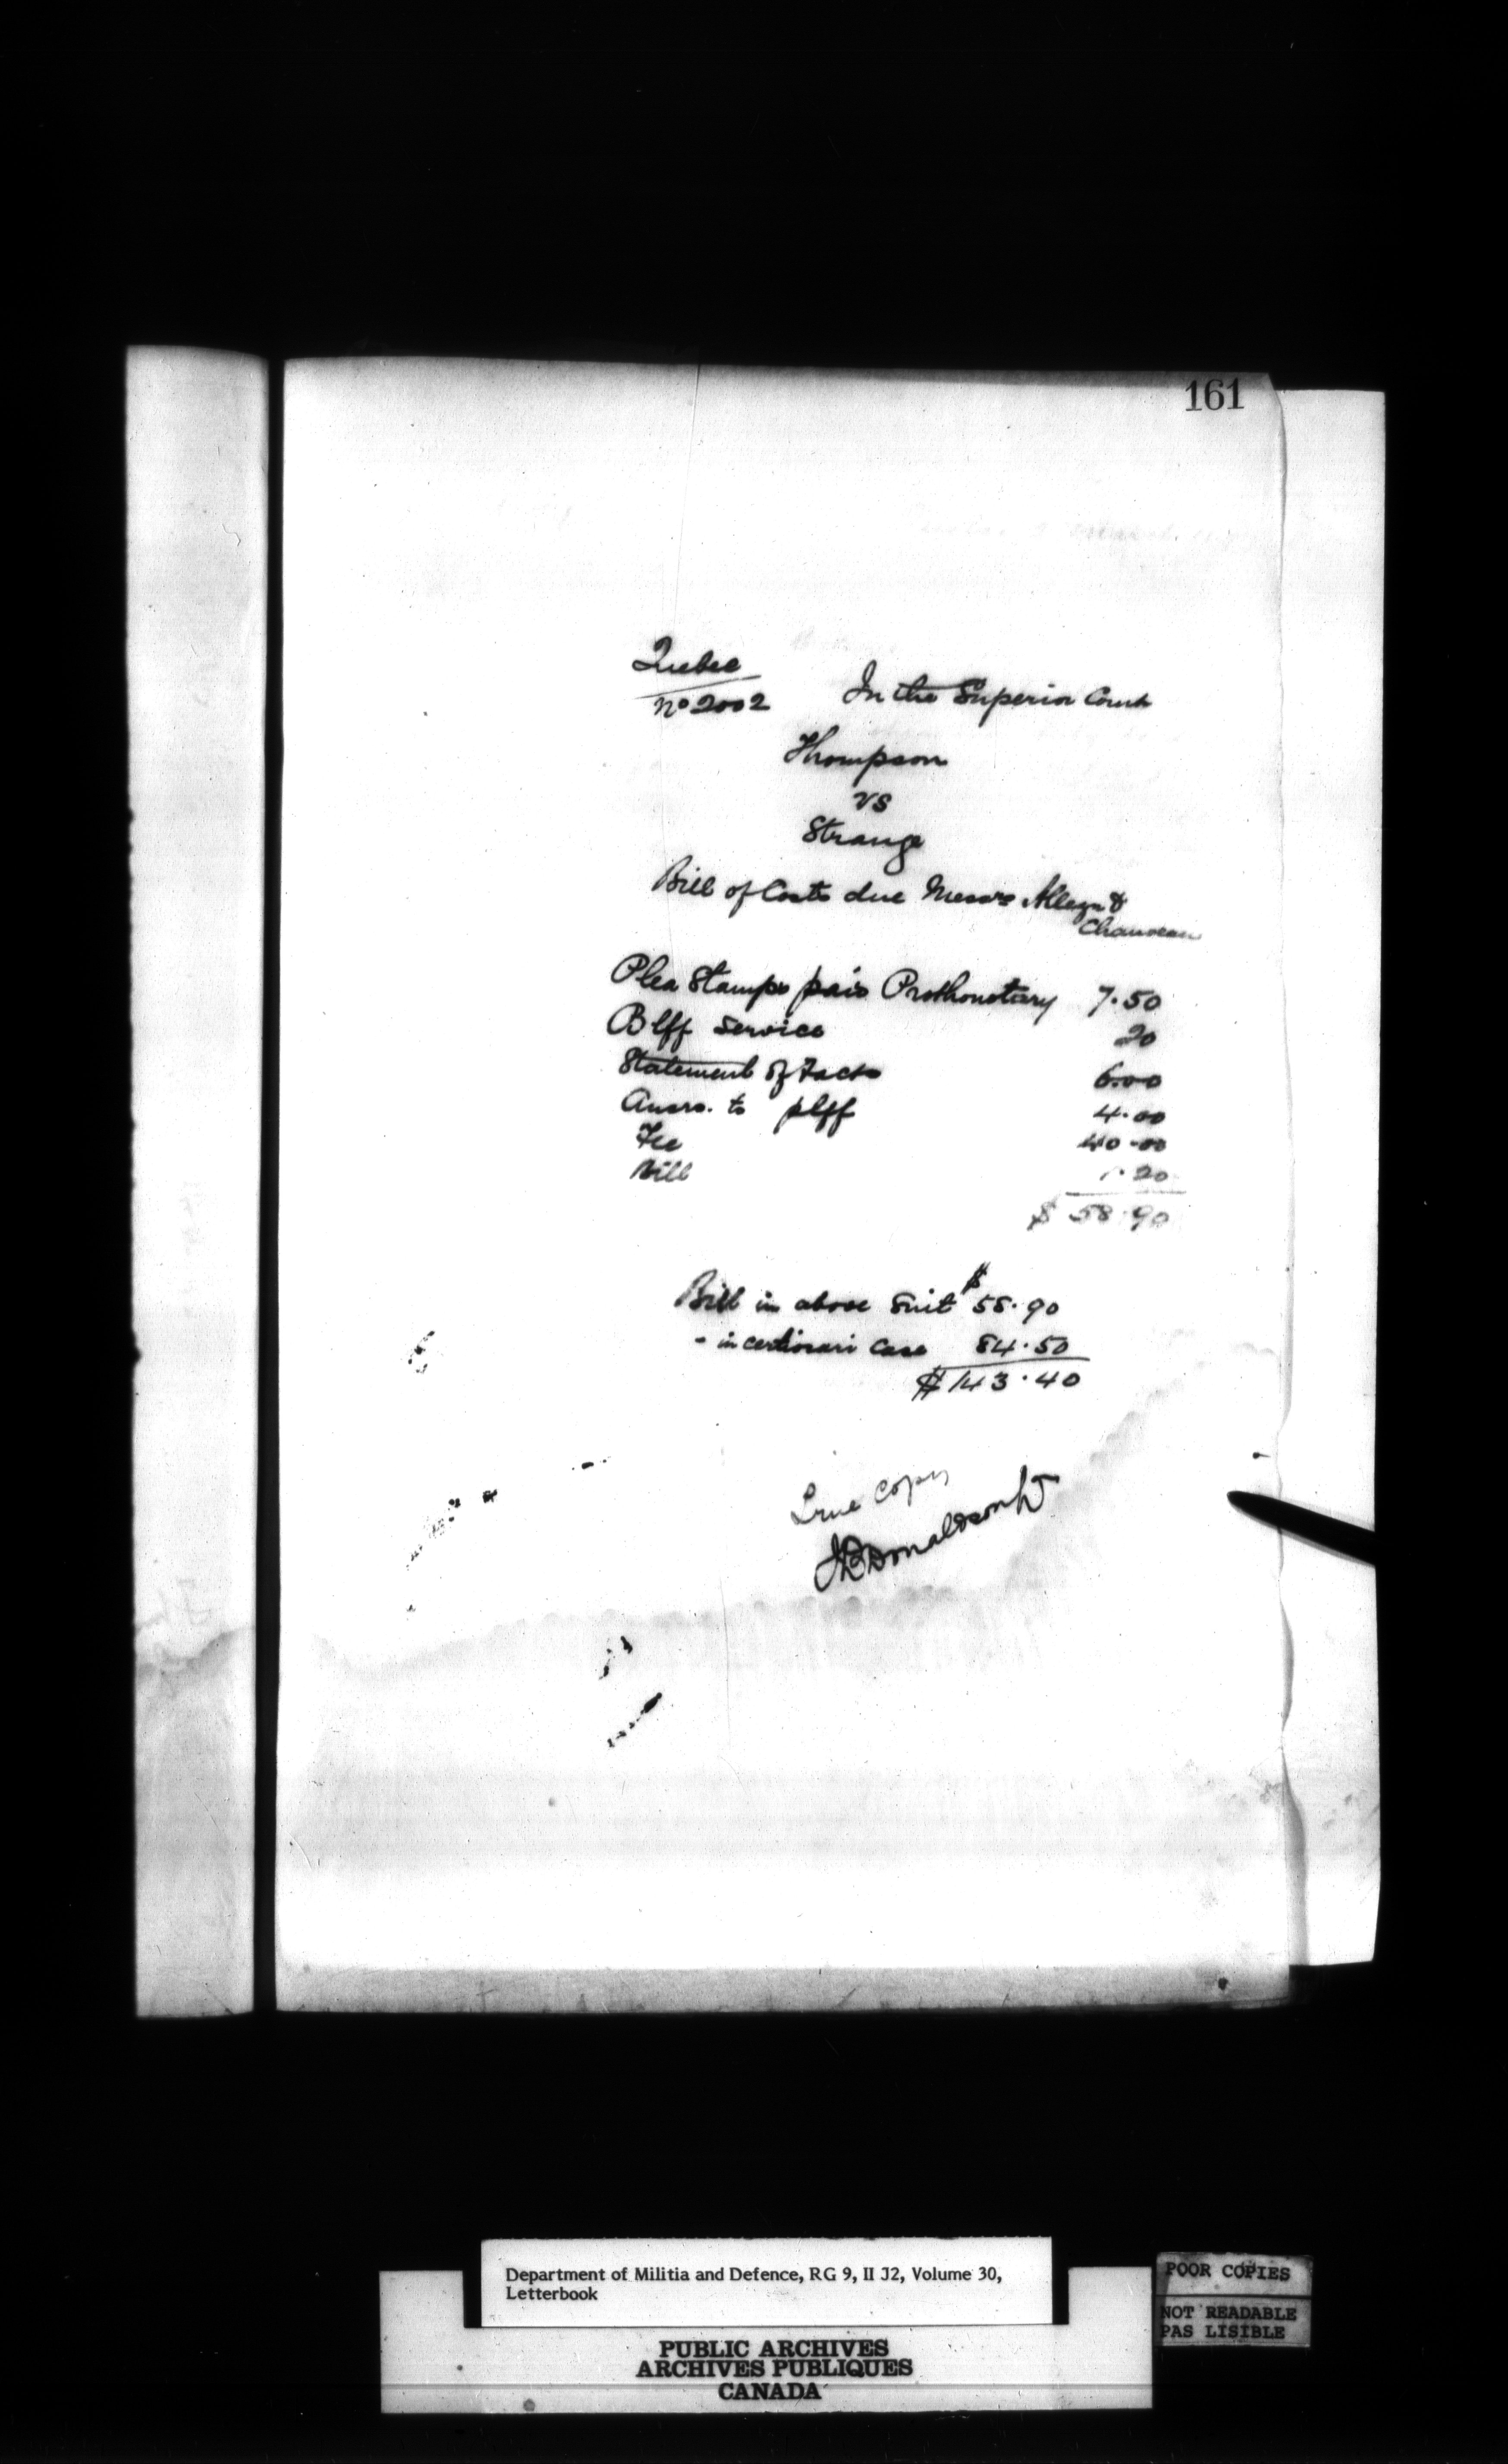 161
Quebec
No 2002
In the Superior Court
Thompson
vs
Strange
Bill of Costs due Messrs Alleyn &
Chauveau
Plea Stamps paid Prothonotary 7.50
Blff Service 20
Statement of Facts 6.00
Answs. to plff 4.00
Fee 40.00
Bill 1.20
$ 58.90
Bill in above Suit $ 58.90
- in certiorari Case 84.50
$ 143.40
True Copy
Donaldson
Department of Militia and Defence, RG 9, II J2, Volume 30,
Letterbook
PUBLIC ARCHIVES
ARCHIVES PUBLIQUES
CANADA
POOR COPIES
NOT READABLE
PAS LISIBLE